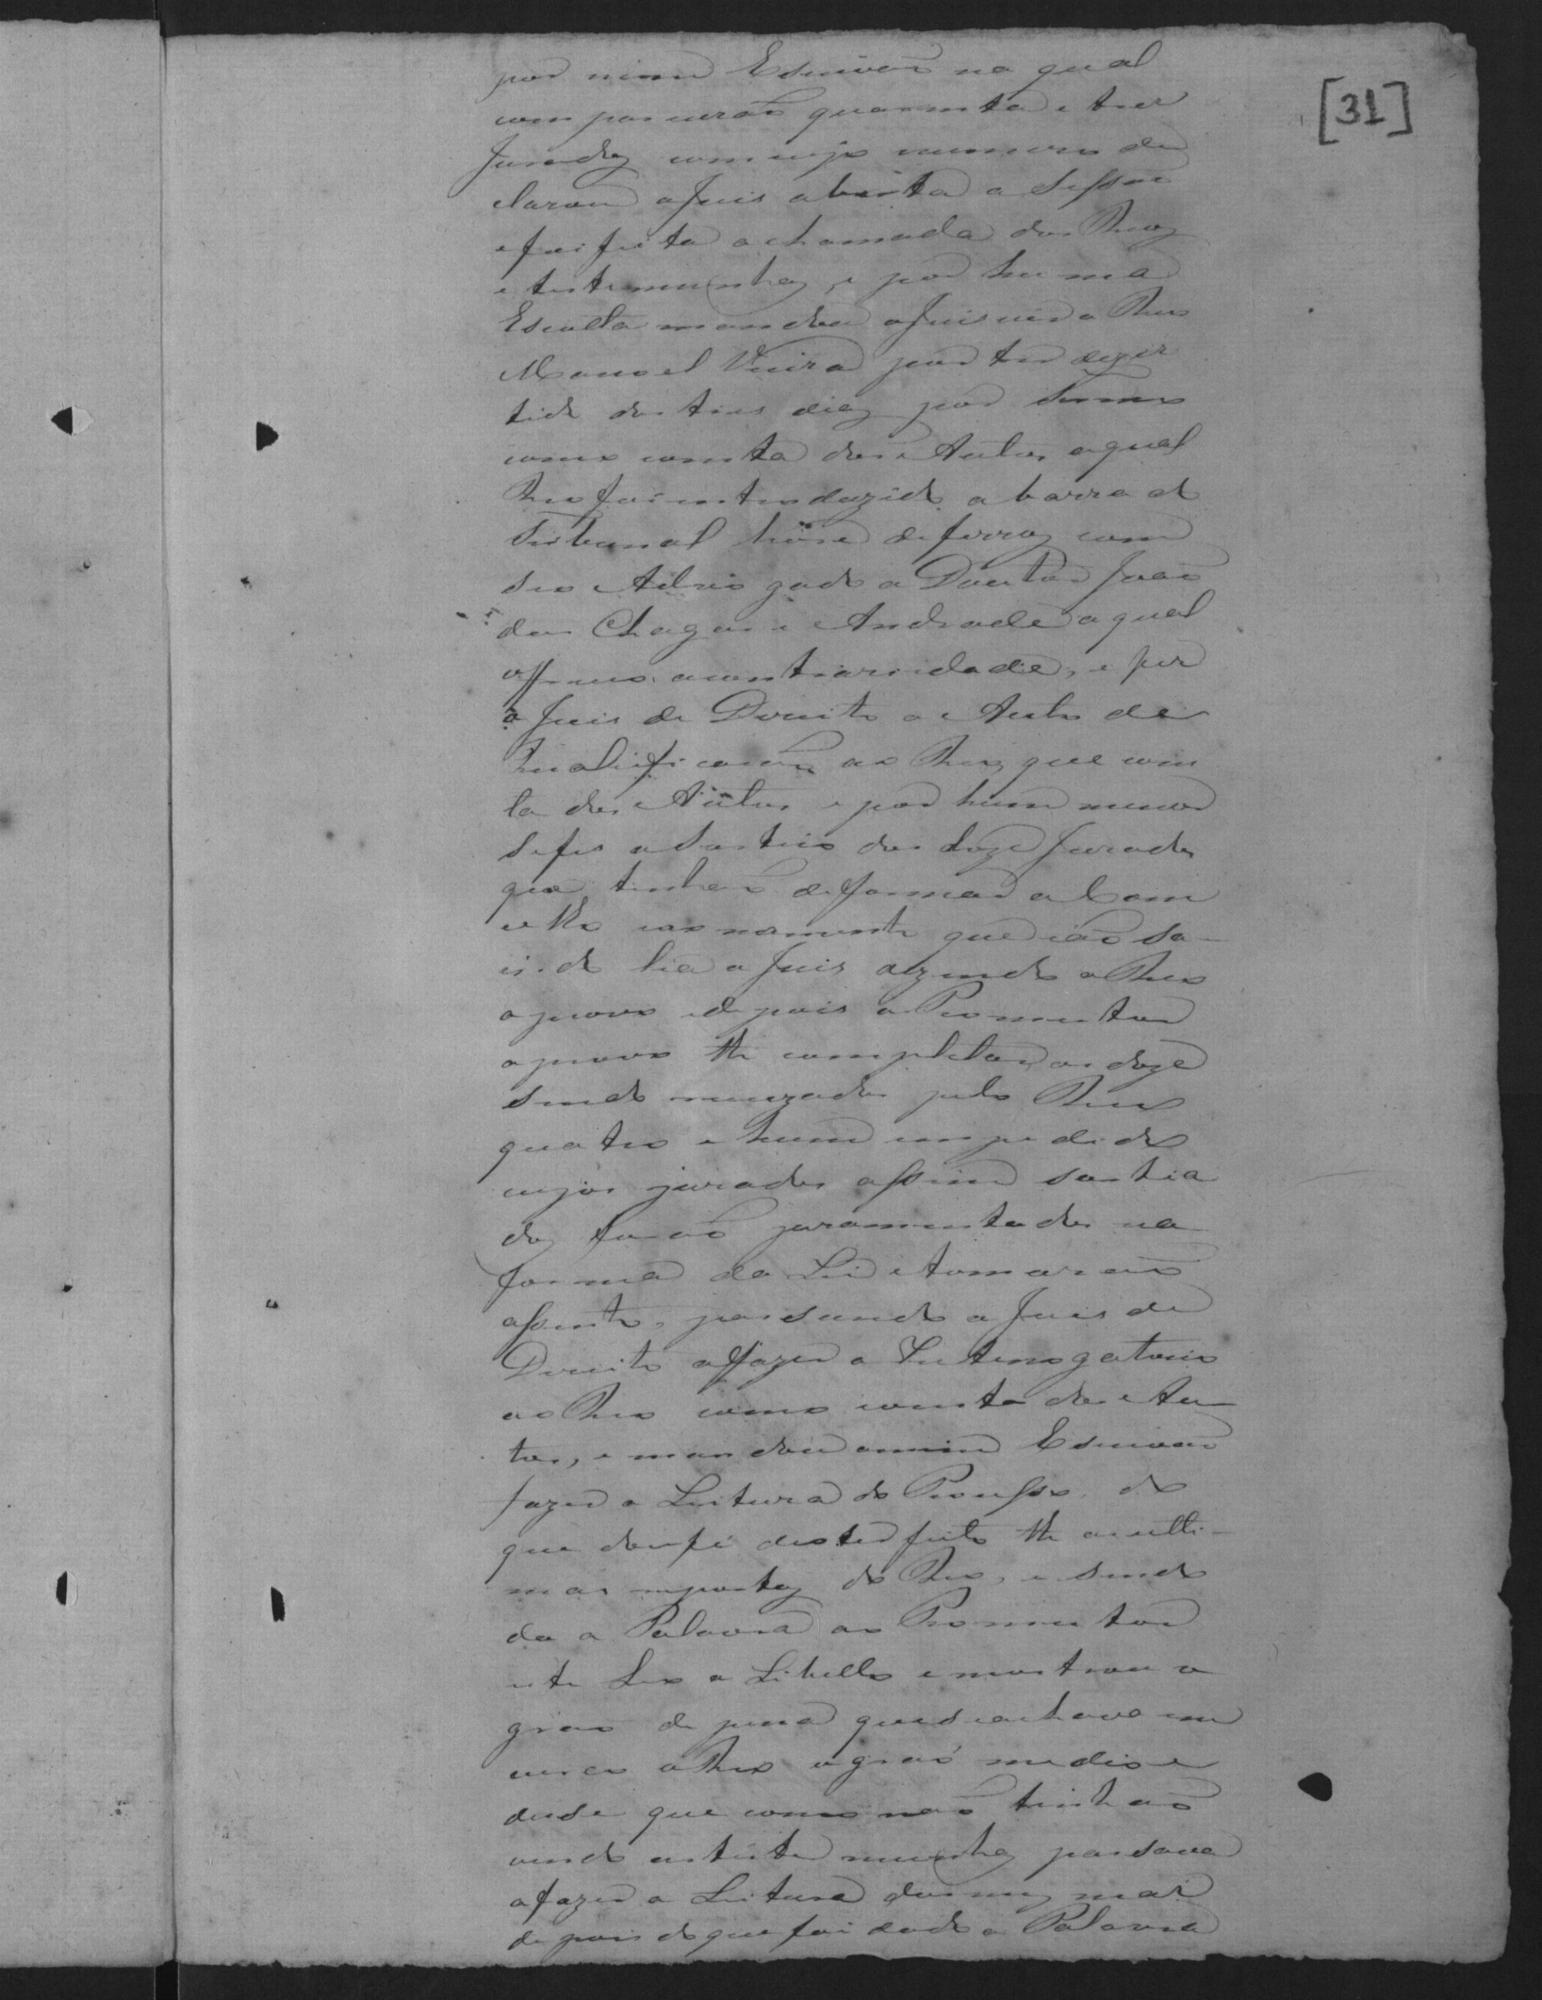 [31]
por mim Escrivaõ na qual
comparceraõ quarenta e tres
Jurados com cujo numero de
clarou o Juis aberta a Sessaõ
e foi feita a chamada dos Reos
e testemunhas, e por huma
Escolta mandou o Juis vir o Reo
Manoel Vieira por ter dezis
tido dos tres dias por termo
como consta dos Autos o qual
Reo foi introduzido a barra do
Tribunal livre de ferros com
seo Advogado o Doutor João
das Chagas e Andrade o qual
offereceo a contrariedade, e fes
o Juis de Direito o Auto de
Qualificacaõ ao Reo, que cons
ta dos Autos e por hum menor
se fes o Sorteio dos doze Jurados
que tinhaõ de formar o Con
celho e as que iaõ sa
indo lia o Juis dizendo o Reo
aprovo e depois o Promotor
aprovo the completar os doze
sendo recuzados pelo Reo
quatro e hum impedido
cujos jurados assim sortia
dos foraõ juramentados na
forma da Lei e tomaraõ
assento, passando o Juis de
Direito a fazer o Interrogatorio
ao Reo como consta dos Au
tos, e mandou a mim Escrivaõ
fazer a Leitura do Processo, do
que dou fé de o ter feito the as ulti
mas respostas do Reo, e sendo
da a Palavra ao Promotor
este Leo o Libello e mostrou o
grao de pena que se achava em
curso o Reo o graõ medio e
disse que como naõ tinhaõ
vindo as testemunhas passava
a fazer a Leitura das mesmas
depois do que foi dada a Palavra